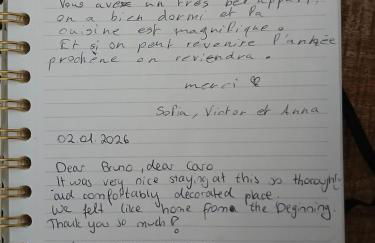 Vous avez un très bel appart,
on a bien dormi et la
cuisine est magnifique.
Et si on peut revenire l'année
prochène on reviendra.
merci
Sofia, Victor et Anna
02.01.2026
Dear Bruno, dear Caro
It was very nice staying at this so thoroughly
and comfortably decorated place.
We felt like home from the beginning.
Thank you so much!